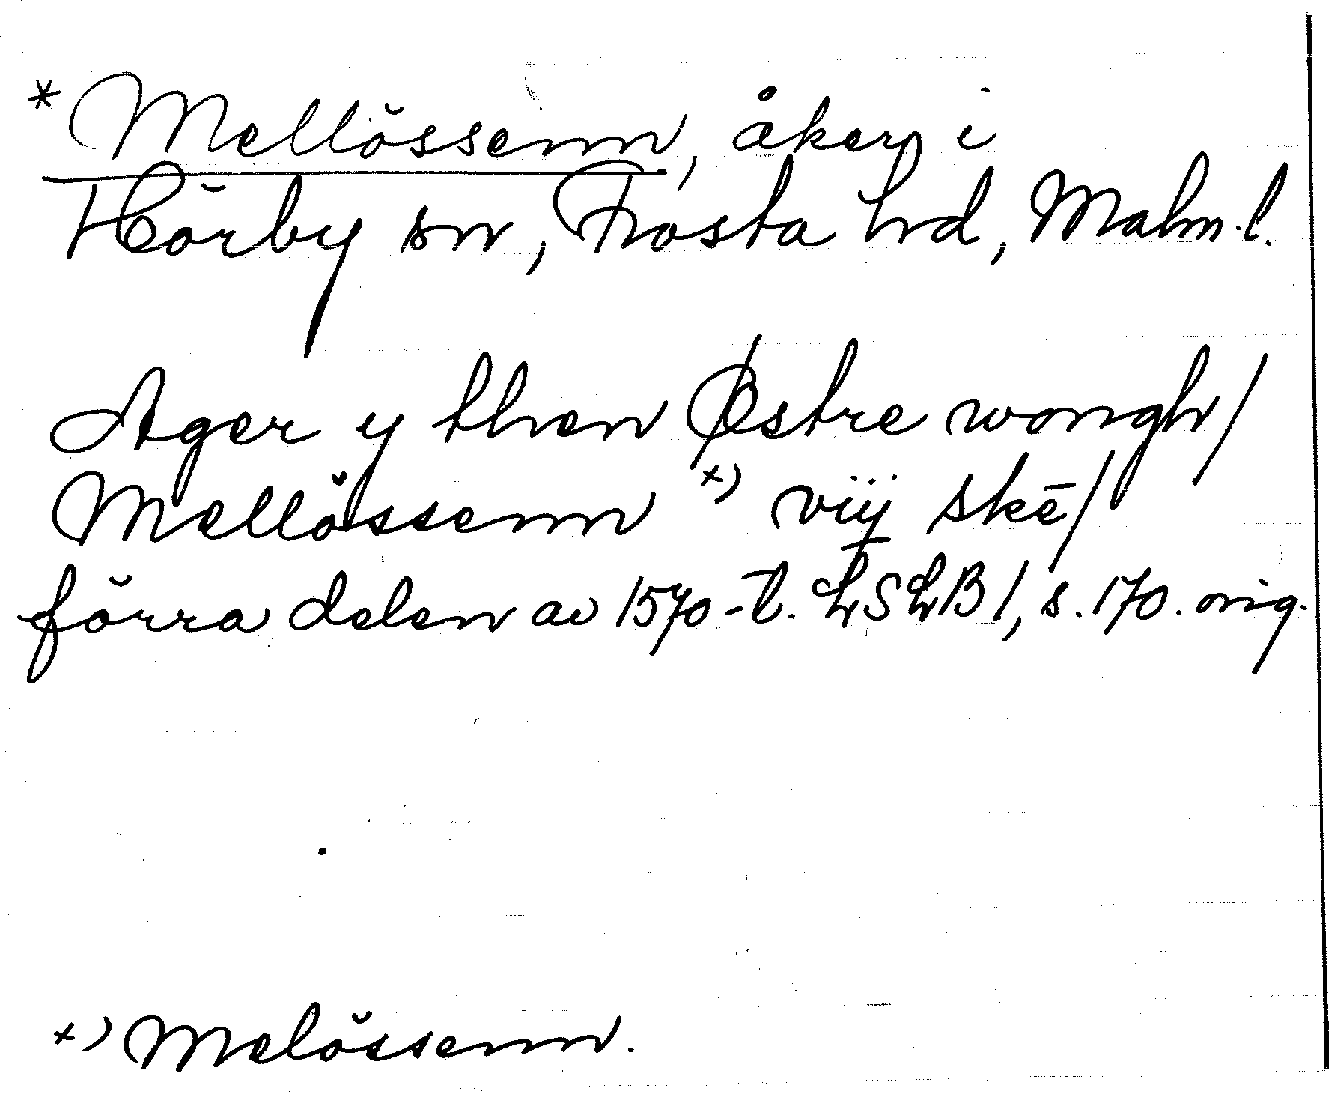 * Mellössenn, åker i
Hörby sn, Frosta hd, Malm.l.
Ager y then Østre wongh/
Mellössenn x) viij skē/
förra delen av 1570-t. LSLB 1, s. 170. orig.
x) Melössenn.